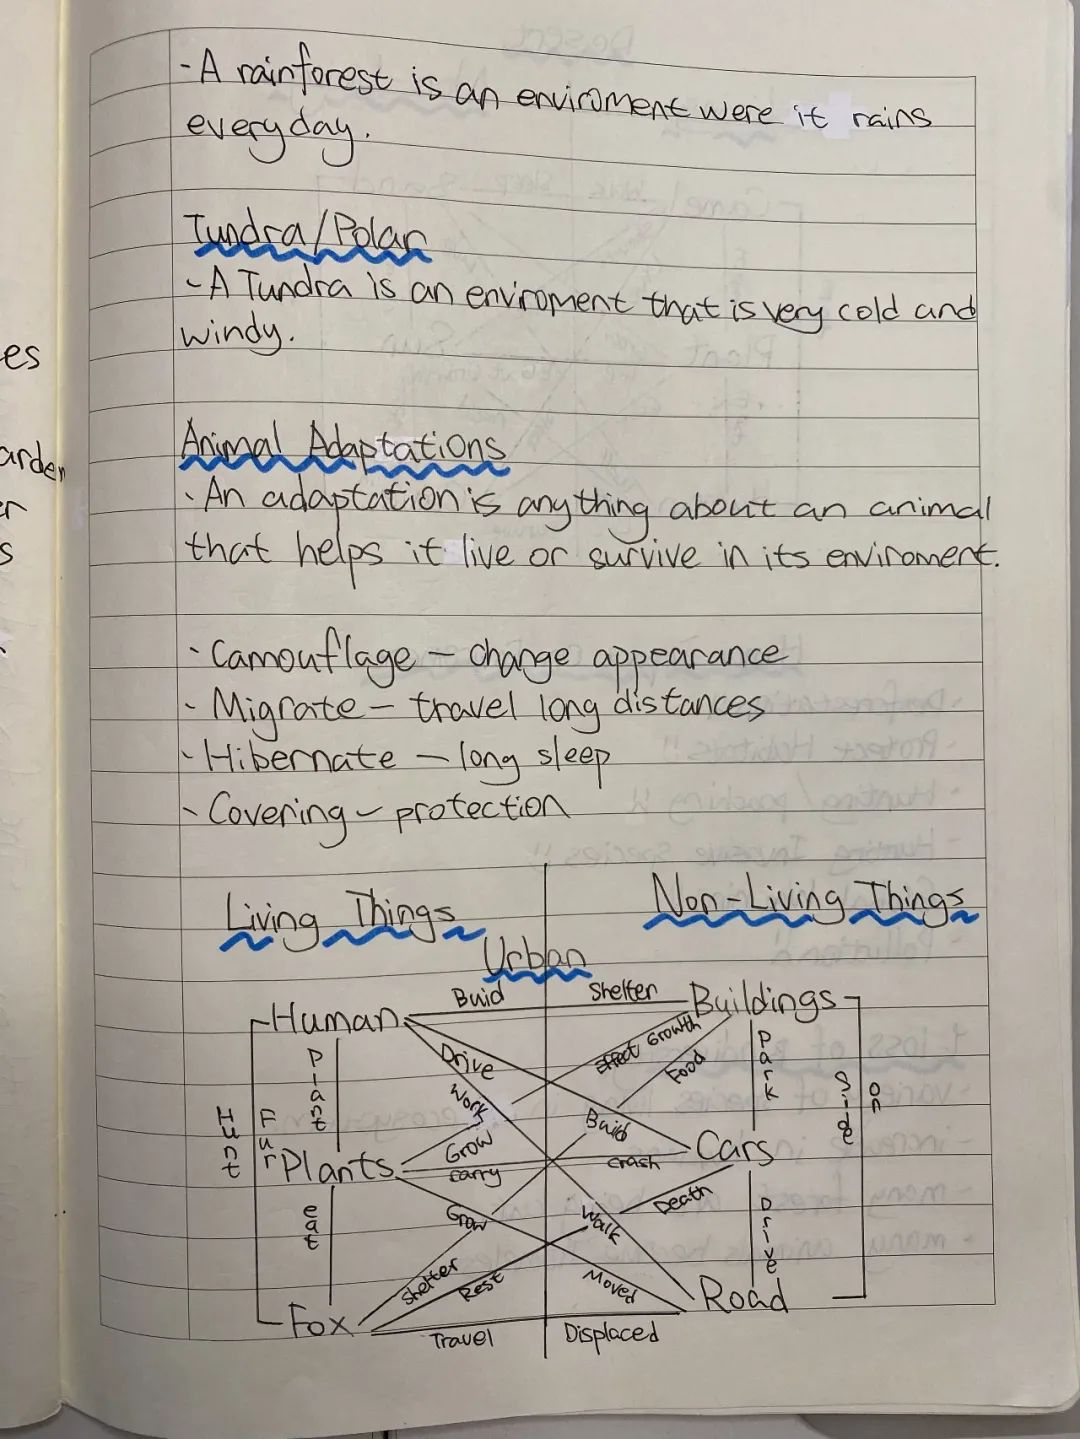 - A rainforest is an enviroment were it rains
everyday.
Tundra/Polar
- A Tundra is an enviroment that is very cold and
windy.
es
arden
er
s
Animal Adaptations
- An adaptation is anything about an animal
that helps it live or survive in its enviroment.
- Camouflage - change appearance
- Migrate - travel long distances
- Hibernate - long sleep
- Covering - protection
Living Things
Non-Living Things
Urban
Human
Buid
Shelter
Buildings
Drive
Effect Growth
Plant
Work
Food
Park
Hunt
Fur
Side
on
Build
Plants
Grow
Carry
Crash
Cars
eat
Grow
Walk
Death
Drive
Shelter
Rest
Moved
Road
Fox
Travel
Displaced